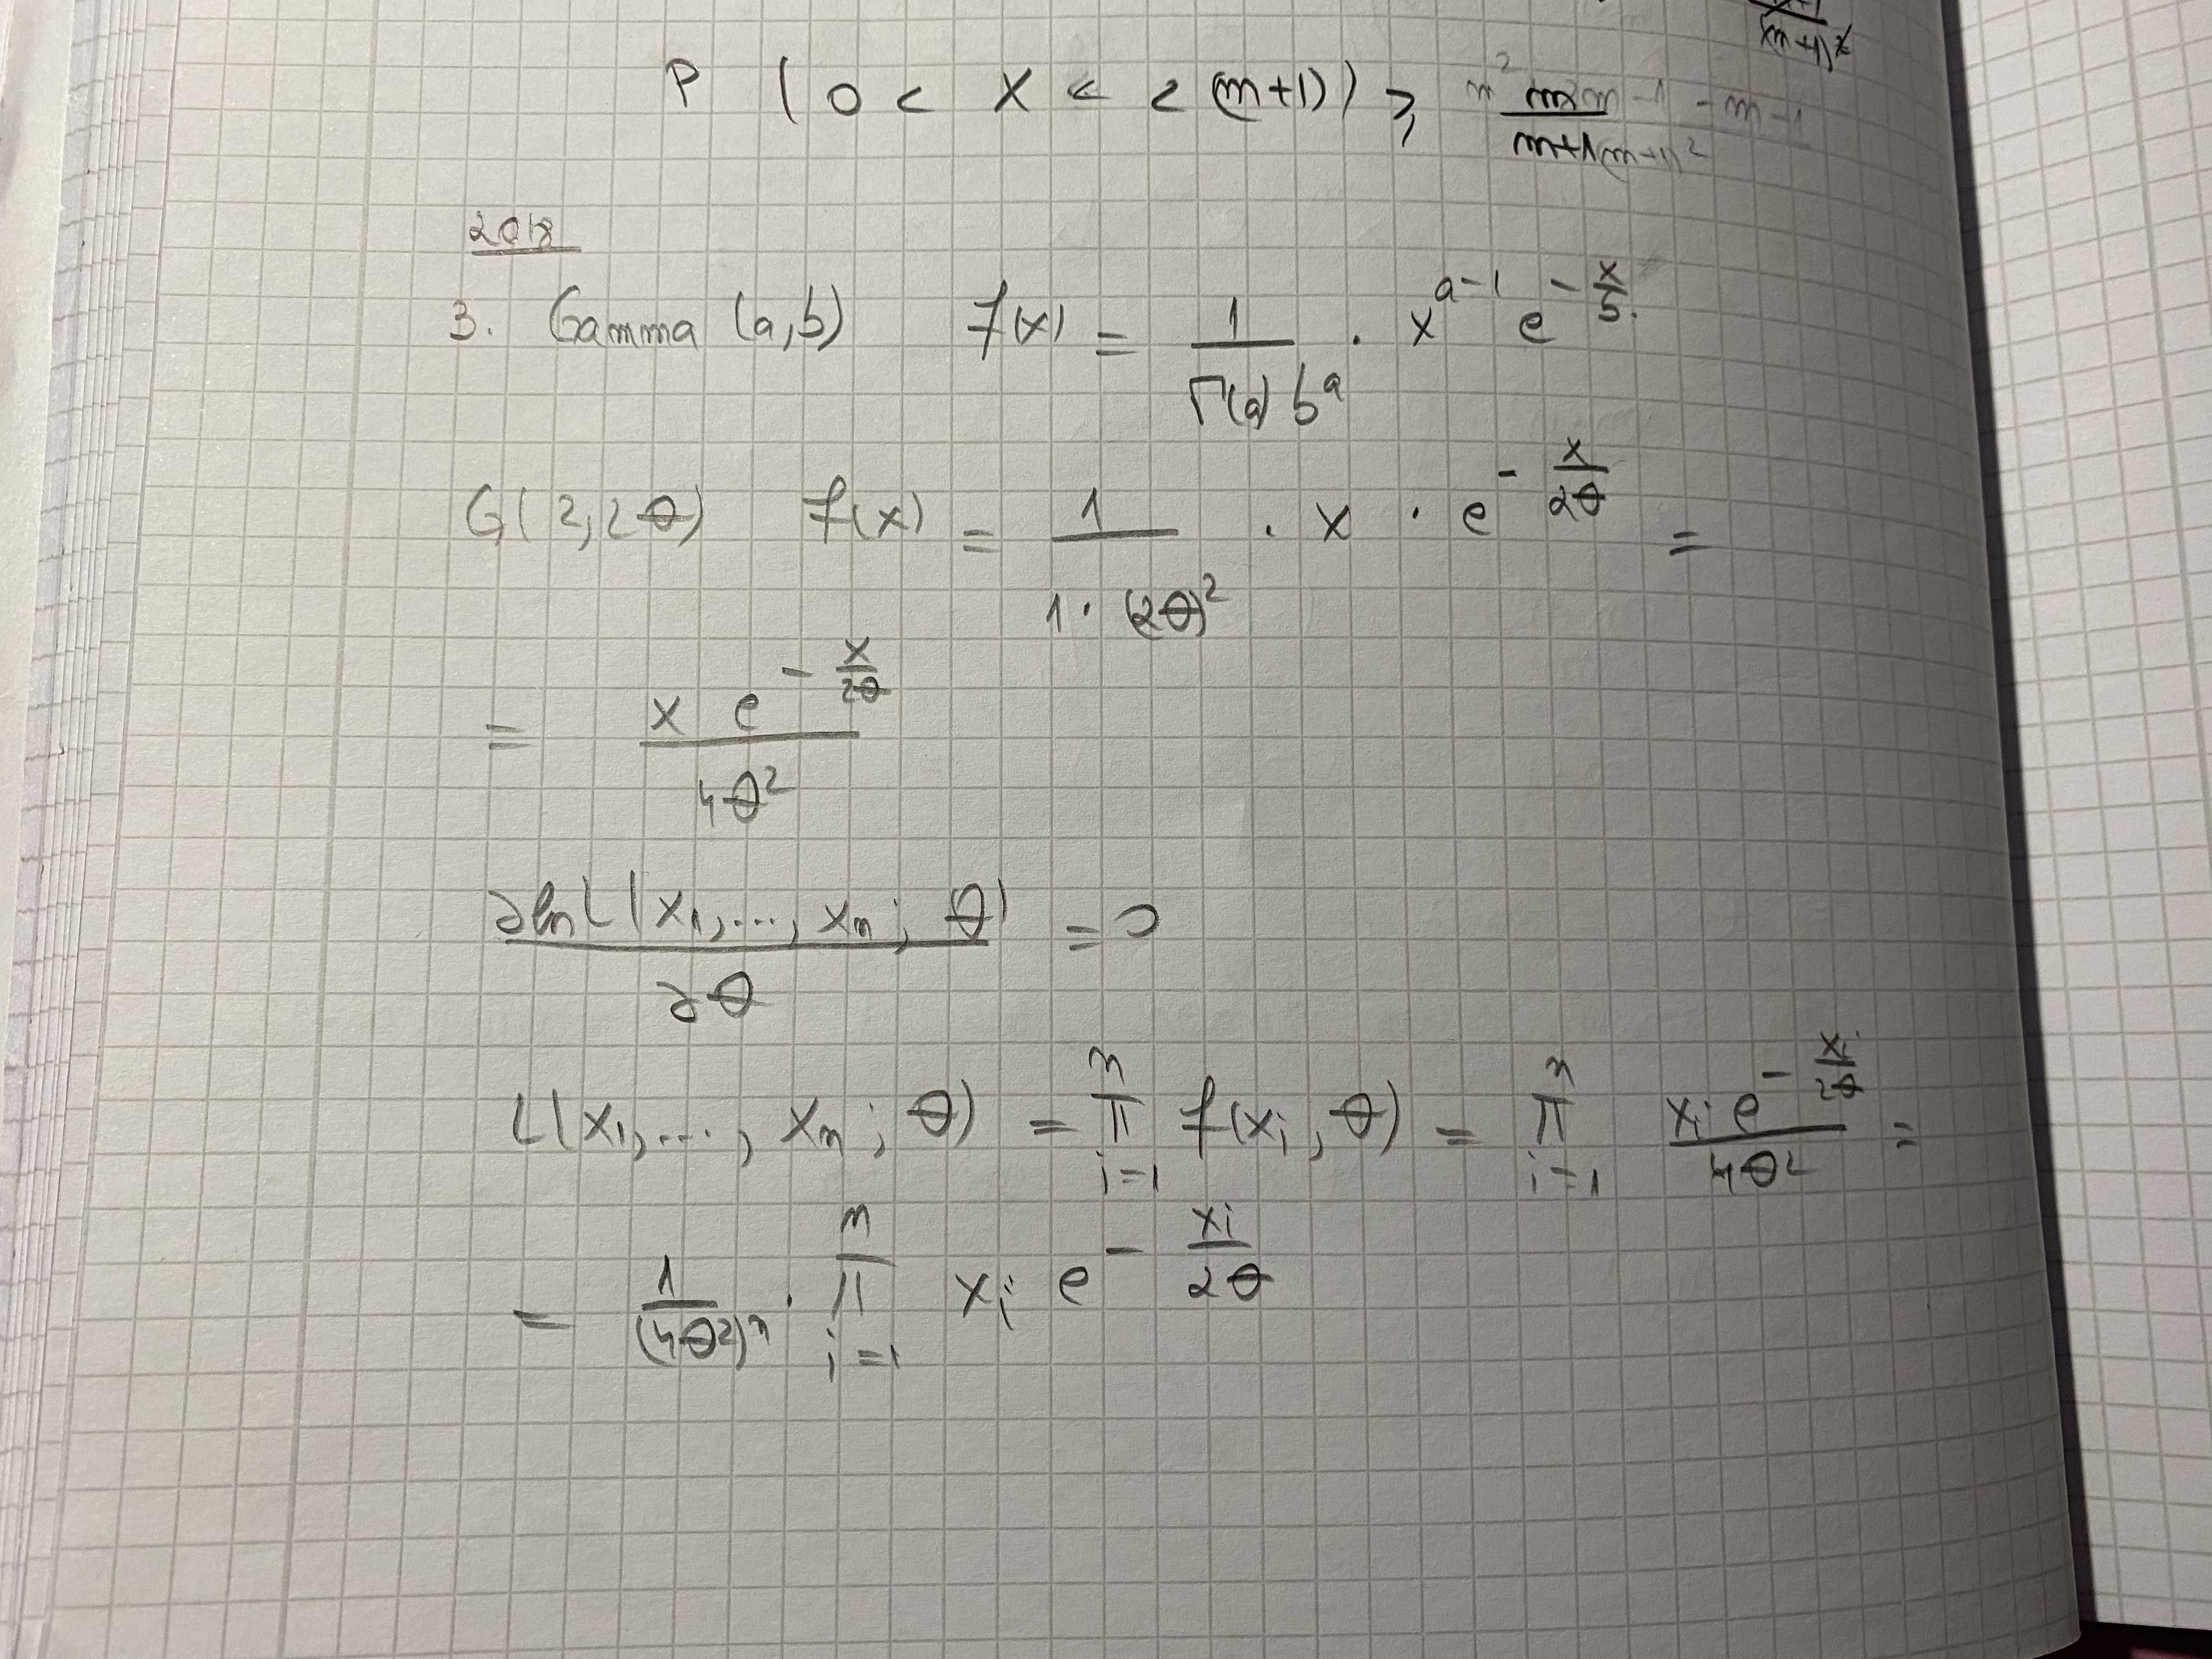 P (0 < X < 2(m+1)) ⩾ m/(m+1)
2018
3. Gamma (a,b) f(x) = 1/(Γ(a) b^a) · x^(a-1) e^(-x/b)
G(2,2θ) f(x) = 1/(1·(2θ)^2) · x · e^(-x/(2θ)) =
= (x e^(-x/(2θ)))/(4θ^2)
∂lnL(x₁,...,xₙ; θ)/∂θ = 0
L(x₁,...,xₙ; θ) = ∏_{i=1}^{n} f(xᵢ, θ) = ∏_{i=1}^{n} (xᵢ e^(-xᵢ/(2θ)))/(4θ^2) =
= 1/(4θ^2)^n · ∏_{i=1}^{n} xᵢ e^(-xᵢ/(2θ))